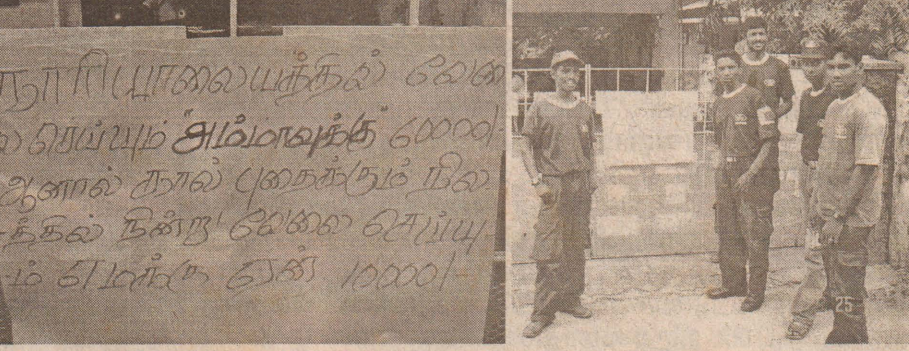 காரியாலையத்தில் வேலை
செய்யும் அம்மாவுக்கு 60000/-
ஆனால் கால் புதைக்கும் நில
த்தில் நின்று வேலை செய்யு
ம் எமக்கு ஏன் 10000/-
25